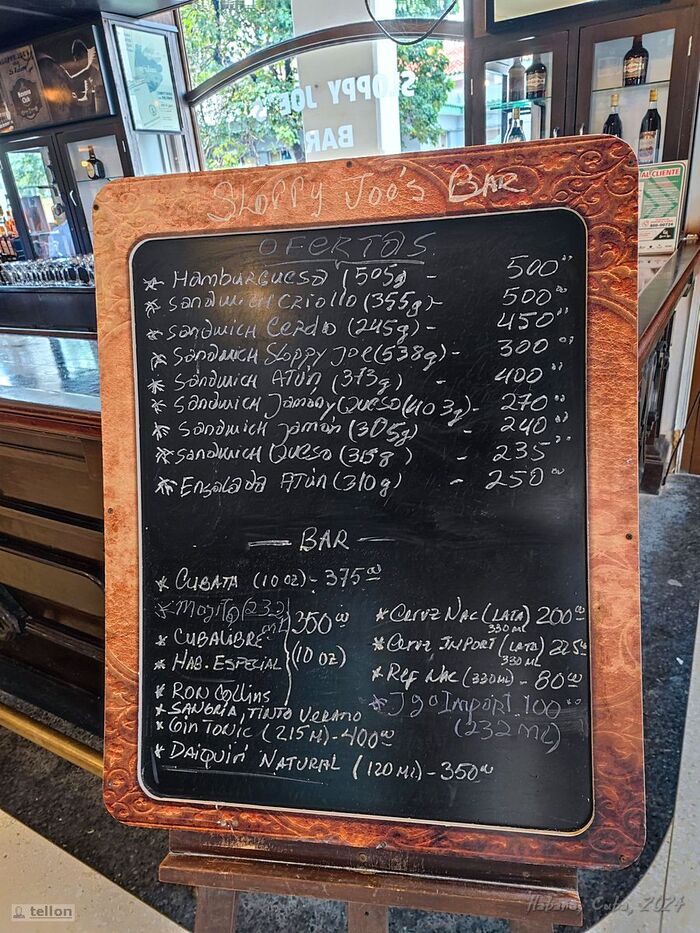 SLOPPY JOE'S
BAR
AL CLIENTE
Sloppy Joe's BAR
OFERTAS
* Hamburguesa (505g) - 500⁰⁰
* Sandwich Criollo (355g) - 500⁰⁰
* Sandwich Cerdo (245g) - 450⁰⁰
* Sandwich Sloppy Joe (538g) - 300⁰⁰
* Sandwich Atún (373g) - 400⁰⁰
* Sandwich Jamon y Queso (403g) - 270⁰⁰
* Sandwich Jamón (305g) - 240⁰⁰
* Sandwich Queso (315g) - 235⁰⁰
* Ensalada Atún (310g) - 250⁰⁰
— BAR —
* CUBATA (10 OZ) - 375⁰⁰
* Mojito (232 ml)
* CUBALIBRE
* HAB. ESPECIAL
* RON COLLINS
350⁰⁰
(10 OZ)
* SANGRIA, TINTO VERANO
* Gin Tonic (215 Ml) - 400⁰⁰
* DAIQUIRÍ NATURAL (120 Ml) - 350⁰⁰
* Cervz Nac (LATA) 200⁰⁰
330 Ml
* Cervz Import (LATA) 225⁰⁰
330 Ml
* Ref Nac (330 Ml) - 80⁰⁰
* Jgo Import 100⁰⁰
(232 Ml)
tellon
Habana, Cuba, 2024